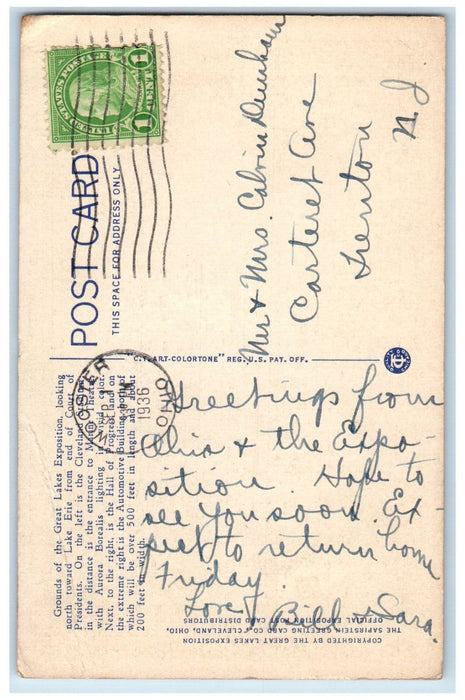 Grounds of the Great Lakes Exposition, looking
north toward Lake Erie from end of Court of
Presidents. On the left is the Cleveland
in the distance is the entrance to Marine Theatre
with Aurora Borealis lighting in vivid color.
Next, to the right, is the Hall of Progress and on
the extreme right is the Automotive Building, both of
which will be over 500 feet in length and about
200 feet in width.
WOOSTER
SEP
1936
OHIO
Greetings from
Ohio & the Expo-
sition. Hope to
see you soon. Ex-
pect to return home
Friday.
Love,
Bill & Sara.
COPYRIGHT BY THE GREAT LAKES EXPOSITION
THE SAPIRSTEIN GREETING CARD CO., CLEVELAND, OHIO.
OFFICIAL EXPOSITION POST CARD DISTRIBUTORS
"C.T. ART-COLORTONE" REG. U.S. PAT. OFF.
POST CARD
THIS SPACE FOR ADDRESS ONLY
UNITED STATES POSTAGE
1 CENT 1
Mr & Mrs. Calvin Denham
Carteret Ave
Trenton
N J